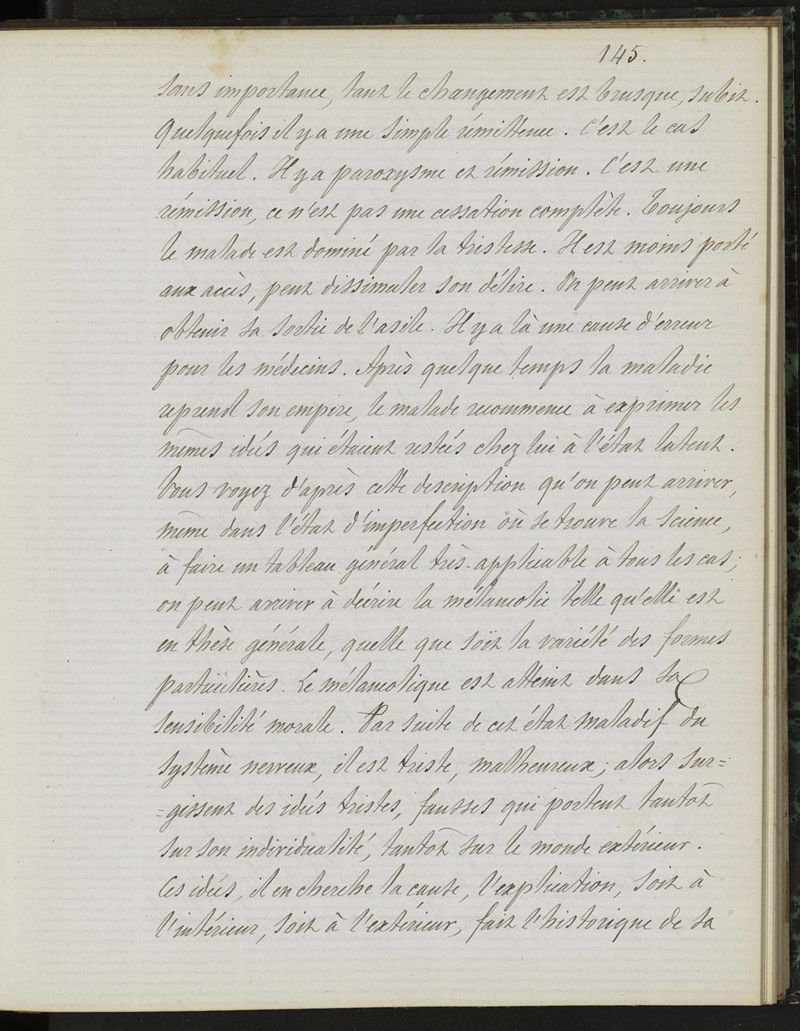 145.
sans importance, tant le changement est brusque, subit.
Quelquefois il y a une simple rémittence. C'est le cas
habituel. Il y a paroxysme et rémission. C'est une
rémission, ce n'est pas une cessation complète. Toujours
le malade est dominé par la tristesse. Il est moins porté
aux accès, peut dissimuler son délire. On peut arriver à
obtenir sa sortie de l'asile. Il y a là une cause d'erreur
pour les médecins. Après quelque temps la maladie
reprend son empire, le malade recommence à exprimer les
mêmes idées qui étaient restées chez lui à l'état latent.
Vous voyez d'après cette description qu'on peut arriver,
même dans l'état d'imperfection où se trouve la science,
à faire un tableau général très-applicable à tous les cas;
on peut arriver à décrire la mélancolie telle qu'elle est
en thèse générale, quelle que soit la variété des formes
particulières. Le mélancolique est atteint dans sa
sensibilité morale. Par suite de cet état maladif du
système nerveux, il est triste, malheureux; alors sur=
=gissent des idées tristes, fausses qui portent tantôt
sur son individualité, tantôt sur le monde extérieur.
Ces idées, il en cherche la cause, l'explication, soit à
l'intérieur, soit à l'extérieur, fait l'historique de sa